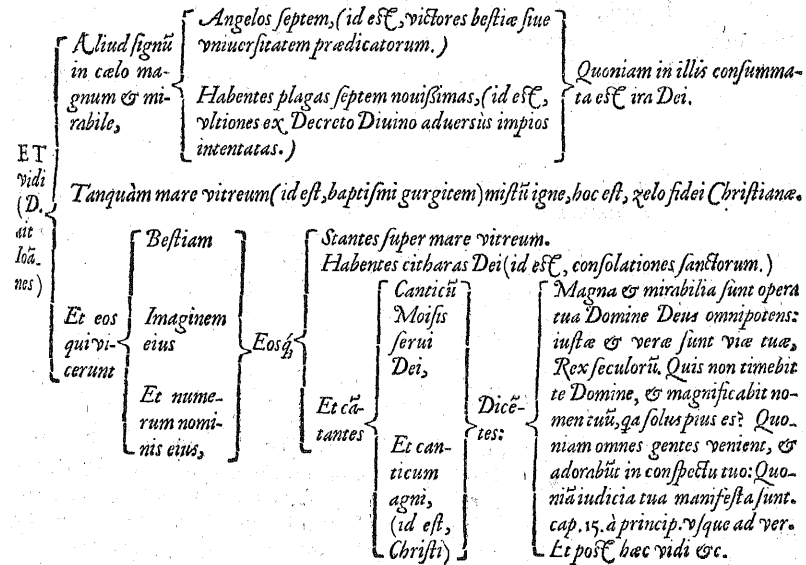 ET
vidi
(D.
ait
Ioã-
nes)
Aliud signũ
in cælo ma-
gnum & mi-
rabile,
Angelos septem, (id est, victores bestiæ siue
vniuersitatem prædicatorum.)
Habentes plagas septem nouißimas, (id est,
vltiones ex Decreto Diuino aduersùs impios
intentatas.)
Quoniam in illis consumma-
ta est ira Dei.
Tanquàm mare vitreum (id est, baptismi gurgitem) mistũ igne, hoc est, zelo fidei Christianæ.
Et eos
qui vi-
cerunt
Bestiam
Imaginem
eius
Et nume-
rum nomi-
nis eius,
Eosq́;
Stantes super mare vitreum.
Habentes citharas Dei (id est, consolationes sanctorum.)
Et cã-
tantes
Canticũ
Moisis
serui
Dei,
Et can-
ticum
agni,
(id est,
Christi)
Dicẽ-
tes:
Magna & mirabilia sunt opera
tua Domine Deus omnipotens:
iustæ & veræ sunt viæ tuæ,
Rex seculorũ. Quis non timebit
te Domine, & magnificabit no-
men tuũ, qa solus pius es? Quo-
niam omnes gentes venient, &
adorabũt in conspectu tuo: Quo-
niã iudicia tua manifesta sunt.
cap. 15. à princip. vsque ad ver.
Et post hæc vidi &c.